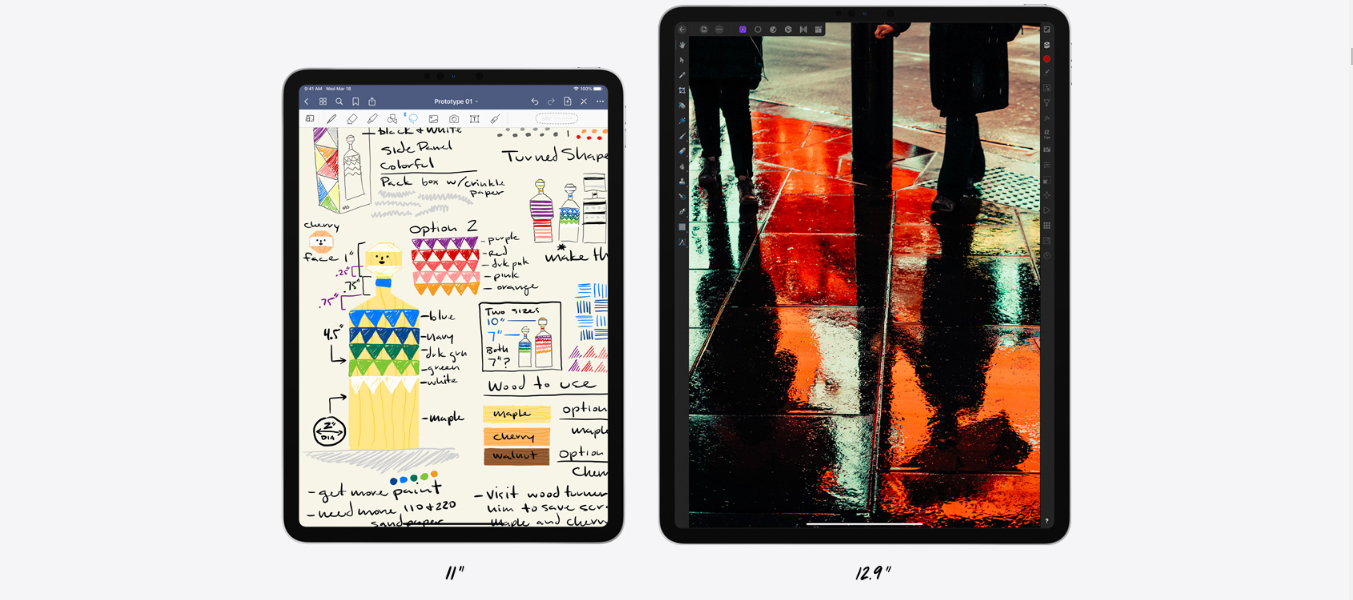 9:41 AM Wed Mar 18
100%
Prototype 01
black & white
side Panel
Colorful
Pack box w/crinkle
paper
Turned Shape
cherry
face 1"
.25"
.75"
.75"
4.5"
2"
DIA
Option 2
purple
red
drk pnk
pink
orange
make th
blue
navy
drk grn
green
white
maple
Two sizes
10"
7"
Both
7"?
Wood to use
maple
cherry
walnut
option
maple
Option
Cherr
-get more paint
-need more 110 & 220
sandpaper
-visit wood turner
him to save scr
maple and cherr
11"
12.9"